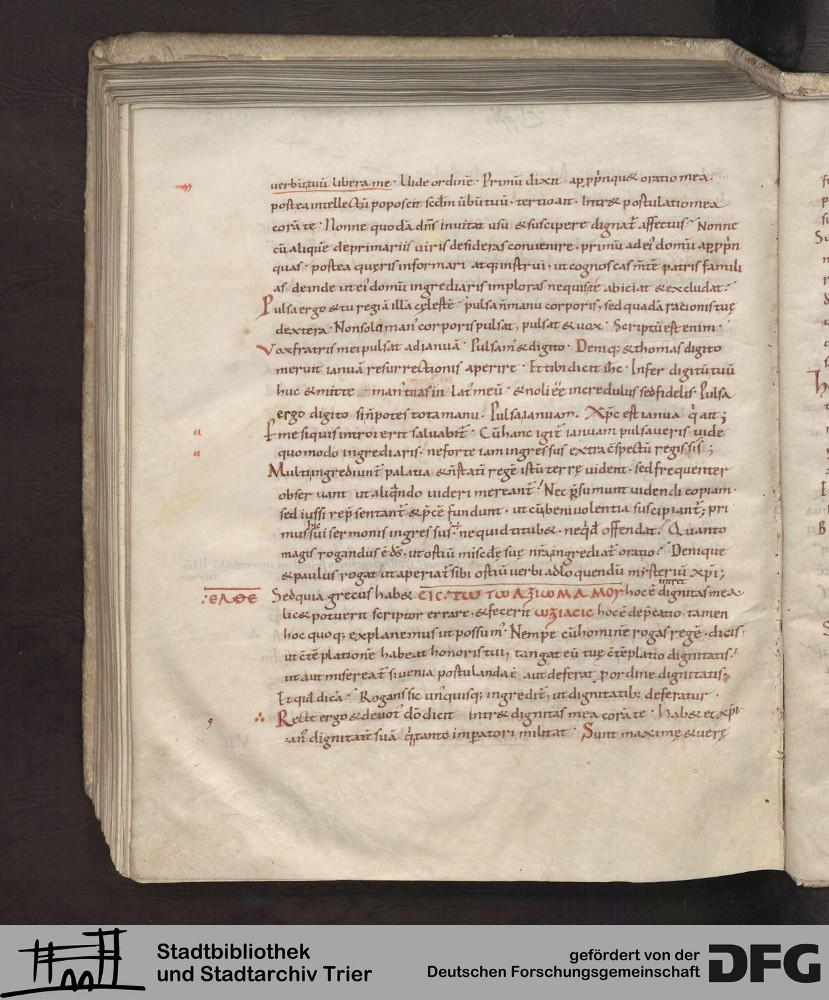 uerbū tuū libera me · Uide ordinē · Primū dixit appp̄nque& oratio mea ·
postea intellectū poposcit scdm̄ ūbū tuū · tertio ait · Intr& postulatio mea
corā te · Nonne quodā dn̄s inuitat usu & suscipere dignat̄ affectus · Nonne
cū aliquē de primariis uiris desideras conuenire · primū ad ei' domū app̄pn
quas · postea queris informari atq; instrui · ut cognoscas mt̄e patris famili
as · deinde ut ei' domū ingrediaris imploras ne quis te abiciat & excludat ·
Pulsa ergo & tu regiā illā celestē pulsa n̄ manu corporis, sed quadā rationis tuę
dextera · Non solū man' corporis pulsat, pulsat & uox · Scriptū est enim ·
Vox fratris mei pulsat ad ianuā · Pulsam' & digito · Deniq; & thomas digito
meruit ianuā resurrectionis aperire · Et tibi dicit ih̄c · Infer digitū tuū
huc & mitte man' tuas in lat' meū · & noli eē incredulus sed fidelis · Pulsa
ergo digito si n̄ potes tota manu · Pulsa ianuam · Xp̄c est ianua q' ait ;
P me si quis introierit saluabit̄ · Cū hanc igit̄ ianuam pulsaueris uide
quomodo ingrediaris · ne forte iam ingressus extra c̄spectū regis sis ;
Multi ingrediunt̄ palatia & n̄ statī regē istū terrę uident · sed frequenter
obseruant ut aliqn̄do uideri mereant̄ · Nec p̄sumunt uidendi copiam ·
sed iussi rep̄sentant̄ & p̄cē fundunt · ut cū beniuolentia suscipiant̄ ; pri
mus sui sermonis ingressus · ne quid titub& · neqd̄ offendat · Quanto
magis rogandus ē ds̄ · ut ostiū mis̄cdę suę nr̄a ingrediat̄ oratio · Denique
& paulus rogat ut aperiat̄ sibi ostiū uerbi ad loquendū mysteriū xp̄i ;
∴ ΕΛΘΕ Sed quia grecus hab& ΕΙC · ΤѠ ΤѠ ΑΞΙѠΜΑ ΜΟΥ hoc ē intret dignitas mea ·
lic& potuerit scriptor errare · & fecerit ѠΞΙΑCΙC hoc ē dep̄catio · tamen
hoc quoq; explanemus ut possum' · Nempe cū hominē rogas regē · dicis
ut c̄tēplationē habeat honoris tui, tangat eū tuę c̄tēplatio dignitatis ·
ut aut misereat̄ si uenia postulanda ē aut deferat p ordine dignitatis ;
Et quid dicā · Rogans sic un' quisq; ingredit̄ ; ut dignitatib; deferatur ·
∴ Recte ergo & deuot' dō dicit intr& dignitas mea corā te · Hab& et xp̄i
an' dignitatē suā q' tanto imp̄atori militat · Sunt maximę & uerę
Stadtbibliothek
und Stadtarchiv Trier
gefördert von der
Deutschen Forschungsgemeinschaft
DFG